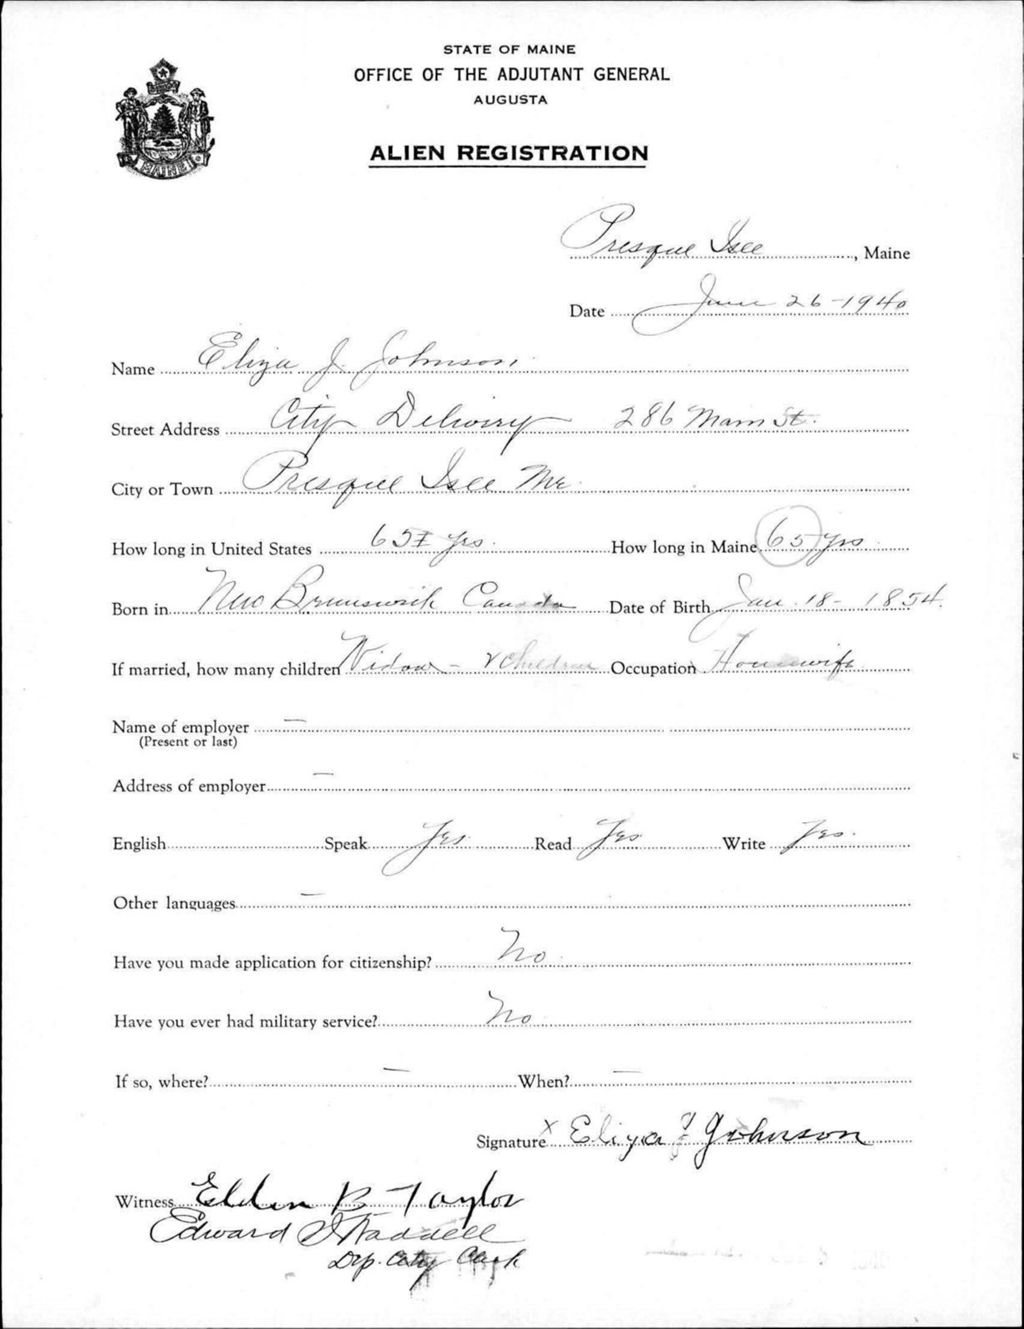 STATE OF MAINE
OFFICE OF THE ADJUTANT GENERAL
AUGUSTA
MAINE
ALIEN REGISTRATION
Presque Isle, Maine
Date June 26-1940
Name Eliza J. Johnson
Street Address City Delivery 286 Main St.
City or Town Presque Isle Me
How long in United States 65 yrs. How long in Maine 65 yrs
Born in New Brunswick Canada Date of Birth Jan. 18- 1854
If married, how many children Widow - Children Occupation Housewife
Name of employer —
(Present or last)
Address of employer —
English Speak Yes Read Yes Write Yes.
Other languages —
Have you made application for citizenship? No
Have you ever had military service? No
If so, where? — When? —
Signature x Eliza J Johnson
Witness Elden B Taylor
Edward Waddell
Dep. City Clerk